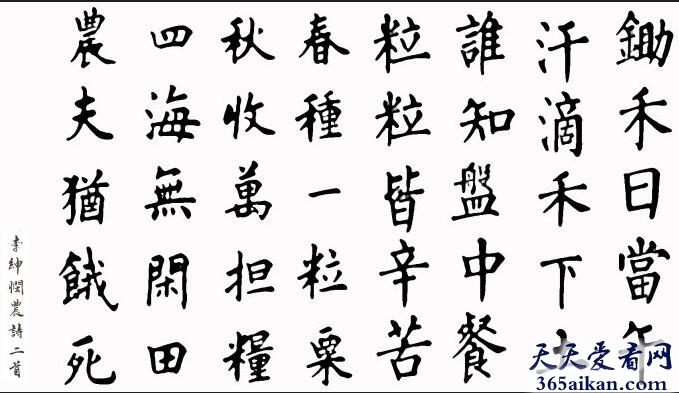 鋤禾日當午
汗滴禾下土
誰知盤中餐
粒粒皆辛苦
春種一粒粟
秋收萬担糧
四海無閑田
農夫猶餓死
李紳憫農詩二首
天天爱看网
365aikan.com